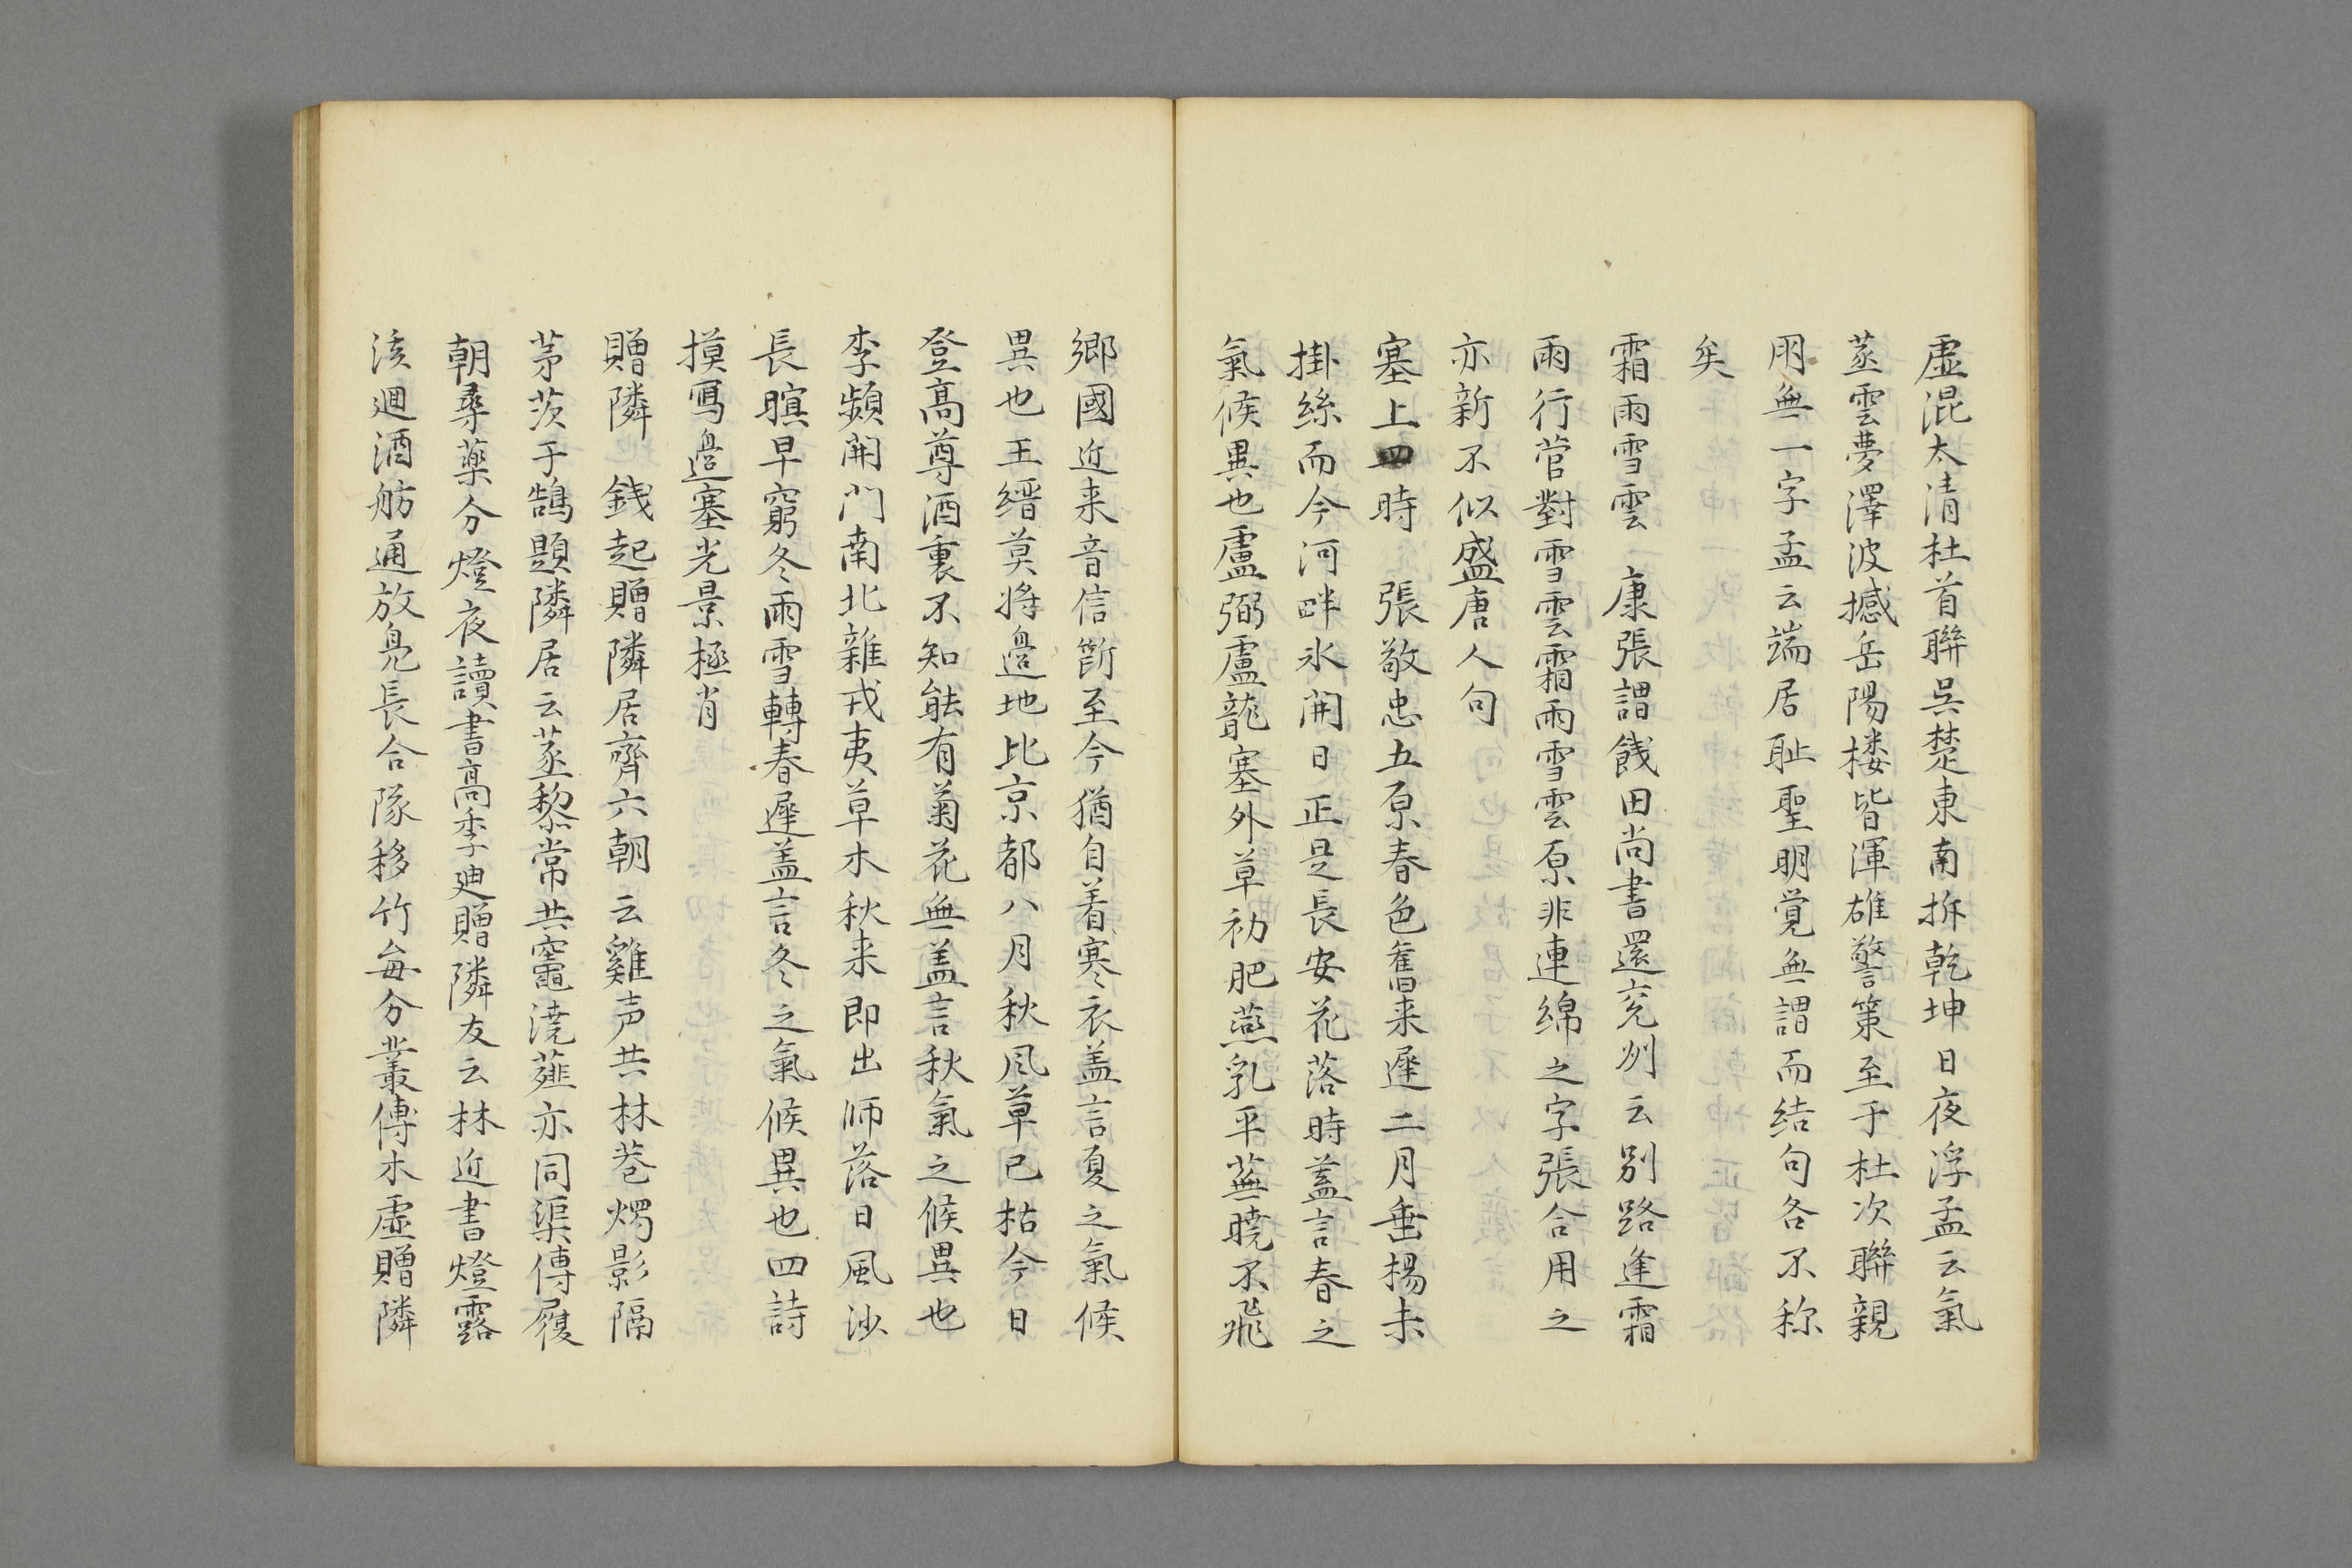 虚混太清杜首聯呉楚東南拆乾坤日夜浮孟云氣
蒸雲夢澤波撼岳陽楼皆渾雄警策至于杜次聯親
朋無一字孟云端居耻聖明覚無謂而結句各不称
矣
霜雨雪雲 康張謂餞田尚書還兖州云別路逢霜
雨行营對雪雲霜雨雪雲原非連綿之字張合用之
亦新不似盛唐人句
塞上四時 張敬忠五原春色舊来遲二月垂楊未
掛絲而今河畔氷開日正是長安花落時盖言春之
氣候異也盧弼盧龍塞外草初肥燕乳平蕪曉不飛
郷國近来音信断至今猶自着寒衣盖言夏之氣候
異也王縉莫将邉地比京都八月秋風草已枯今日
登高尊酒裏不知能有菊花無盖言秋氣之候異也
李頻開門南北雜戎夷草木秋来即出師落日風沙
長暝早窮冬雨雪轉春遲盖言冬之氣候異也四詩
摸寫邉塞光景極肖
贈隣 銭起贈隣居齊六朝云雞声共林巷燭影隔
茅茨于鵠題隣居云蒸黎常共竈澆薤亦同渠傳履
朝尋薬分燈夜讀書高季迪贈隣友云林近書燈露
渓廻酒舫通放鳧長合隊移竹毎分叢傅木虚贈隣